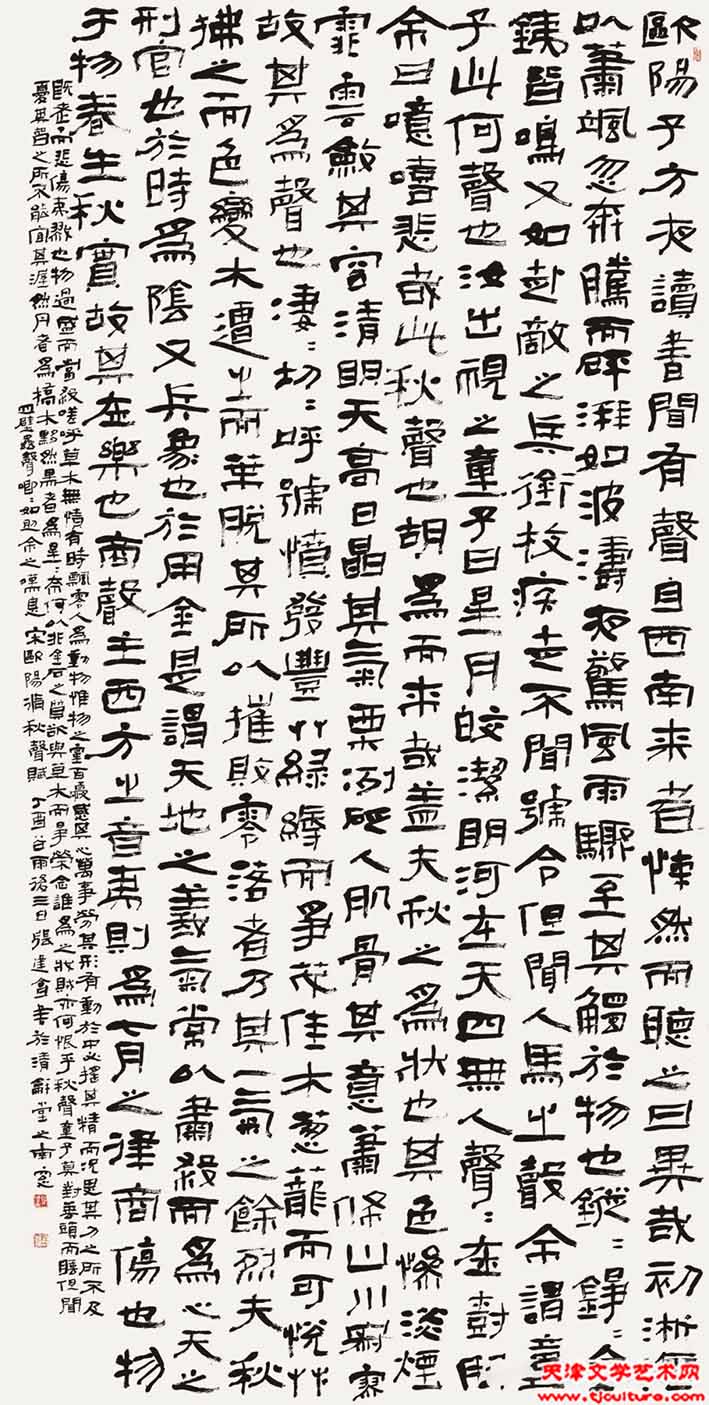 歐陽子方夜讀書聞有聲自西南来者悚然而聽之曰異哉初淅瀝
以蕭颯忽奔騰而砰湃如波濤夜驚風雨驟至其觸於物也鏦:錚:金
鐵皆鳴又如赴敵之兵銜枚疾走不聞號令但聞人馬之聲余謂童
子此何聲也汝出視之童子曰星月皎潔明河在天四無人聲:在樹間
余曰噫嘻悲哉此秋聲也胡為而来哉盖夫秋之為狀也其色慘淡煙
霏雲斂其容清明天高日晶其氣栗冽砭人肌骨其意蕭條山川寂寥
故其為聲也淒:切:呼號憤發豐艸綠縟而爭茂佳木葱蘢而可悅艸
拂之而色變木遭之而葉脫其所以摧敗零落者乃其一氣之餘烈夫秋
刑官也於時為陰又兵象也於用金是謂天地之義氣常以肅殺而為心天之
于物春生秋實故其在樂也商聲主西方之音夷則為七月之律商傷也物
既老而悲傷夷戮也物過盛而當殺嗟呼草木無情有時飄零人為動物惟物之靈百憂感其心萬事勞其形有動於中必搖其精而況思其力之所不及
憂其智之所不能宜其渥然丹者為槁木黟然黑者為星:奈何以非金石之質欲與草木而爭榮念誰為之戕賊亦何恨乎秋聲童子莫對垂頭而睡但聞
四壁蟲聲唧:如助余之嘆息 宋歐陽脩秋聲賦 丁酉谷雨後三日張建會書於清龢堂之南窗
天津文学艺术网
www.tjculture.com